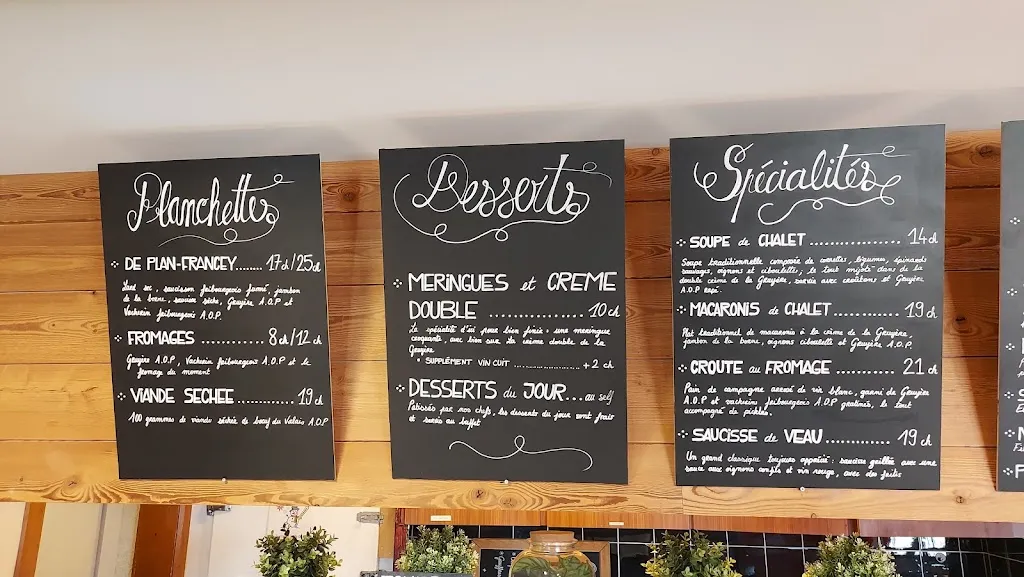 Planchettes
DE PLAN-FRANCEY....... 17ch/25ch
Lard sec, saucisson fribourgeois fumé, jambon
de la borne, saucisse sèche, Gruyère A.O.P et
Vacherin fribourgeois A.O.P.
FROMAGES ............ 8ch/12ch
Gruyère A.O.P, Vacherin fribourgeois A.O.P et le
fromage du moment
VIANDE SECHEE ............ 19ch
100 grammes de viande séchée de boeuf du Valais A.O.P
Desserts
MERINGUES et CREME
DOUBLE .................. 10ch
La spécialité d'ici pour bien finir : une meringue
croquante avec bien sur la crème double de la
Gruyère
• SUPPLÉMENT VIN CUIT .................. +2ch
DESSERTS du JOUR... au self
Patissés par nos chefs, les desserts du jour sont frais
et servis au buffet
Spécialités
SOUPE de CHALET .................. 14ch
Soupe traditionnelle composée de cornettes, légumes, épinards
sauvages, oignons et ciboulettes, le tout mijoté dans de la
double crème de la Gruyère, servie avec croûtons et Gruyère
A.O.P rapé.
MACARONIS de CHALET ............ 19ch
Plat traditionnel de macaronis à la crème de la Gruyère,
jambon de la borne, oignons ciboulette et Gruyère A.O.P.
CROUTE au FROMAGE ............ 21ch
Pain de campagne arrosé de vin blanc, garni de Gruyère
A.O.P et vacherin fribourgeois A.O.P gratinés, le tout
accompagné de pickles.
SAUCISSE de VEAU ............ 19ch
Un grand classique toujours apprécié : saucisse grillée avec une
sauce aux oignons confits et vin rouge, avec des frites